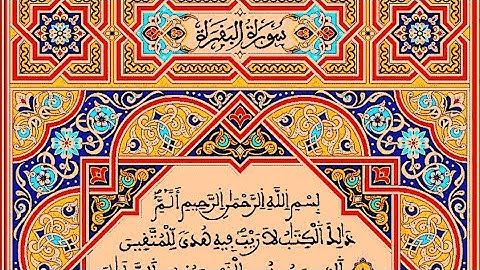 سورة البقرة
بسم الله الرحمن الرحيم الم
ذلك الكتاب لا ريب فيه هدى للمتقين